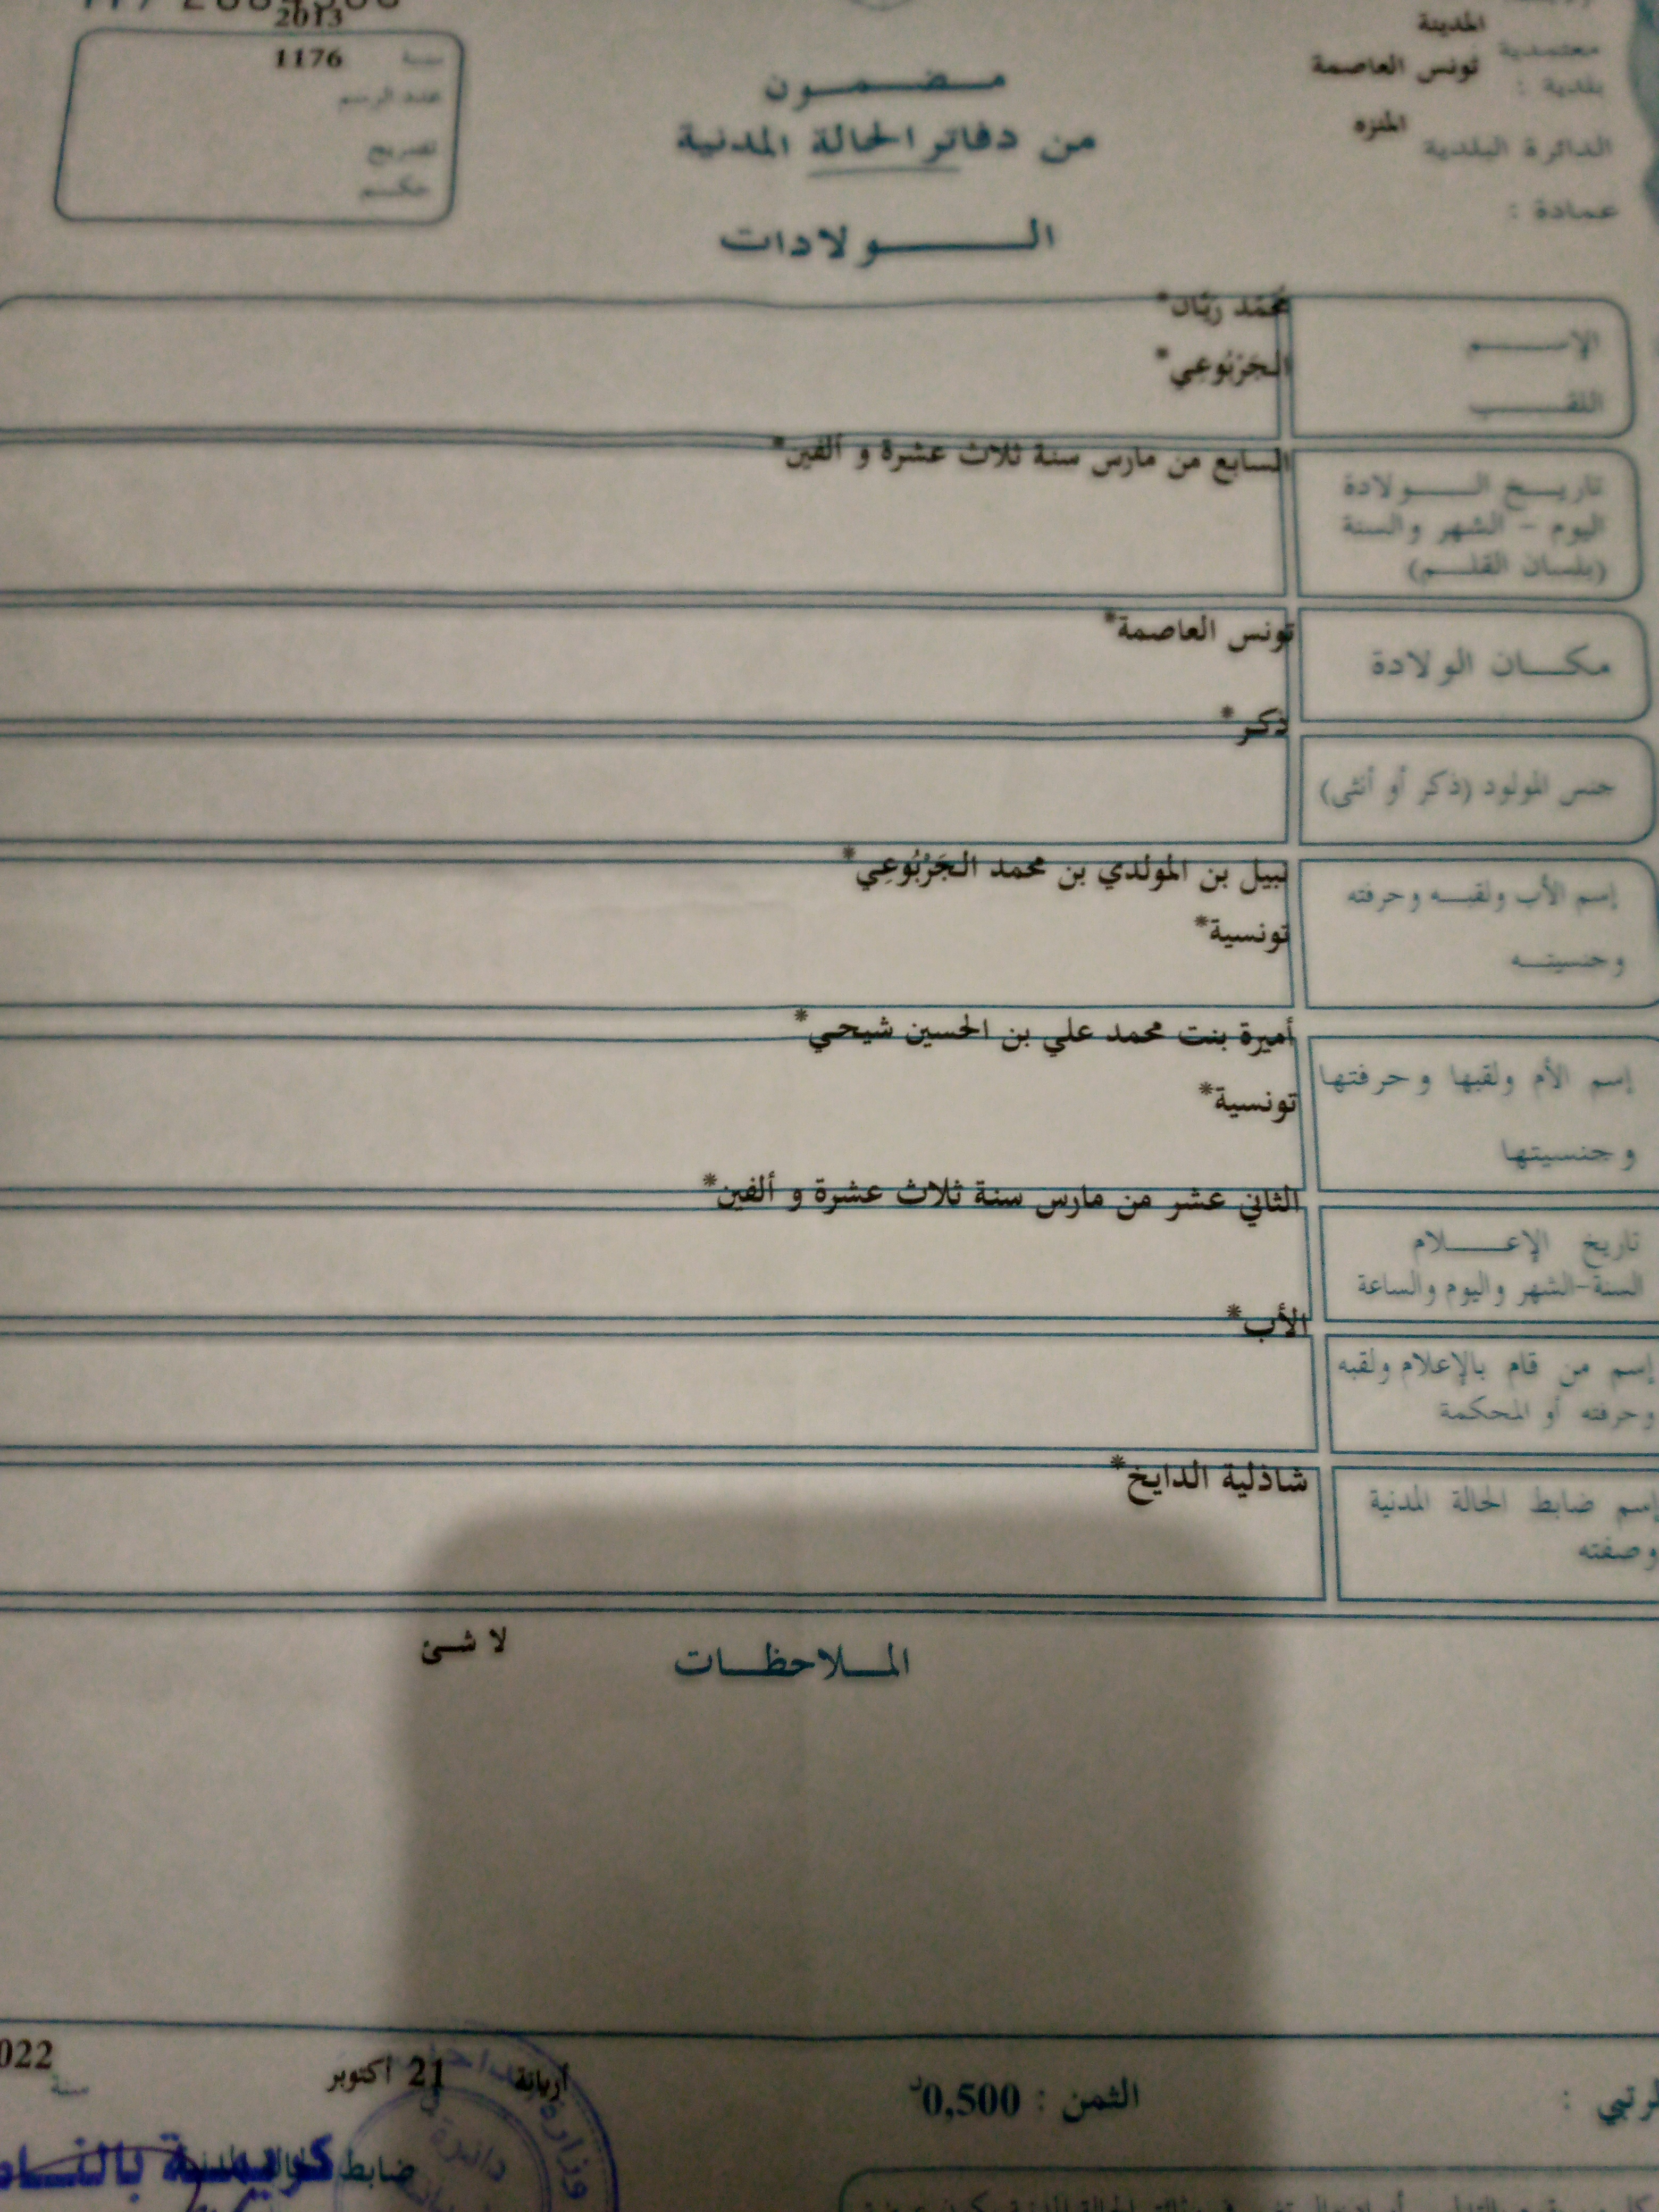 2013
1176
سنة
عدد الرسم
تصريح
حكم
مضمون
من دفاتر الحالة المدنية
الولادات
المدينة
معتمدية
تونس العاصمة
بلدية :
المنزه
الدائرة البلدية
عمادة :
محمّد ريّان*
الإسم
الجَرْبُوعِي*
اللقب
السابع من مارس سنة ثلاث عشرة و ألفين*
تاريخ الولادة
اليوم - الشهر والسنة
(بلسان القلم)
تونس العاصمة*
مكان الولادة
ذكر*
جنس المولود (ذكر أو أنثى)
نبيل بن المولدي بن محمد الجَرْبُوعِي*
إسم الأب ولقبه وحرفته
تونسية*
وجنسيته
أميرة بنت محمد علي بن الحسين شيحي*
إسم الأم ولقبها وحرفتها
تونسية*
وجنسيتها
الثاني عشر من مارس سنة ثلاث عشرة و ألفين*
تاريخ الإعلام
السنة-الشهر واليوم والساعة
الأب*
إسم من قام بالإعلام ولقبه
وحرفته أو المحكمة
شاذلية الدايخ*
إسم ضابط الحالة المدنية
وصفته
الملاحظات
لا شئ
أريانة 21 أكتوبر
سنة
الثمن : 0,500د
ضابط
كريمة
وزارة
دائرة